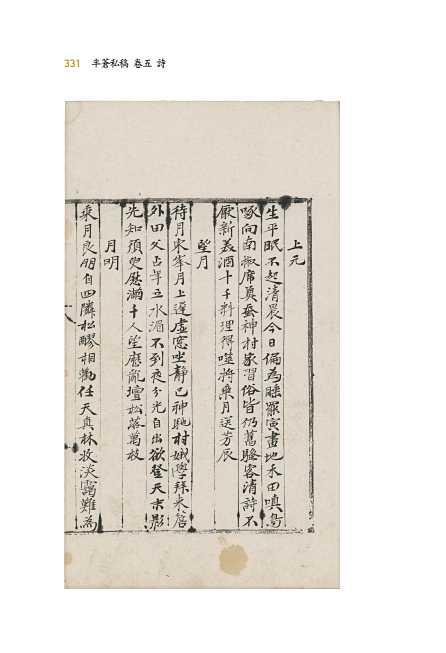 331 半蒼私稿 卷五 詩
上元
生平眠不起清晨今日偏為睡寅畫地禾田嗔鳥
啄向南椒席奠蚕神村家習俗皆仍舊騷客清詩不
厭新美酒十千料理得將乗月送芳辰
望月
待月東峯月上遲虛窓坐静已神馳村娥學拜來簷
外田父占年立水湄不到夜分光自出欲登天末影
先知須臾慰滿千人望應亂壇松落萬枝
月明
乗月良朋自四隣松醪相勸任天真林收淡靄難為